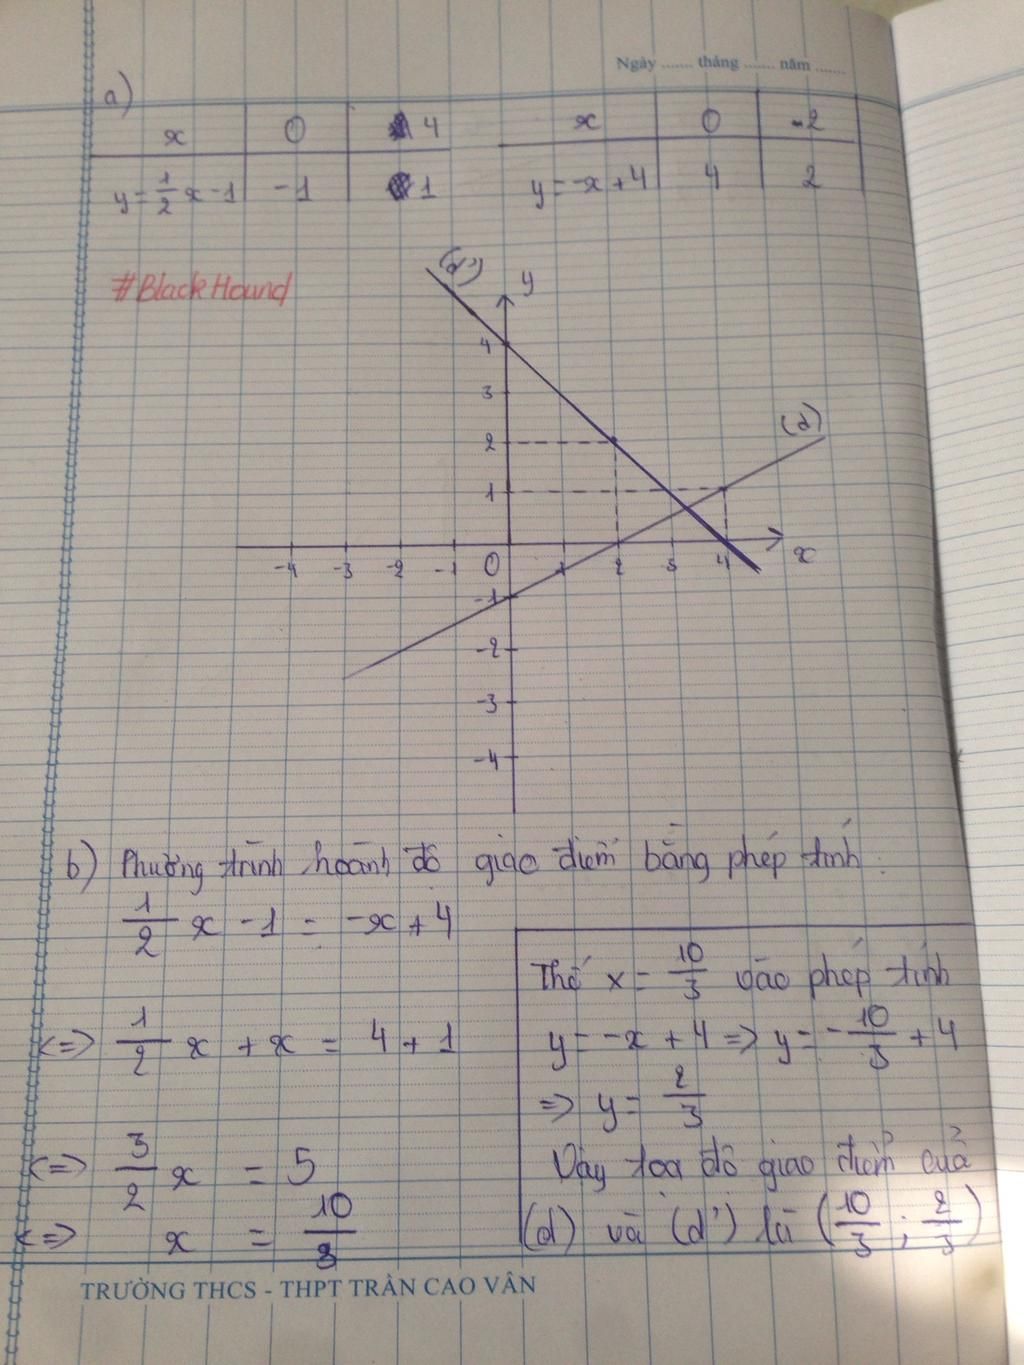 Ngày ....... tháng ....... năm .......
a)
x 0 4
y = 1/2 x - 1 -1 1
x 0 -2
y = -x + 4 4 2
#BlackHound
(d') y
4
3
2 (d)
1
-4 -3 -2 -1 0 1 2 3 4 x
-1
-2
-3
-4
b) Phương trình hoành độ giao điểm bằng phép tính:
1/2 x - 1 = -x + 4
<=> 1/2 x + x = 4 + 1
<=> 3/2 x = 5
<=> x = 10/3
Thế x = 10/3 vào phép tính
y = -x + 4 => y = -10/3 + 4
=> y = 2/3
Vậy tọa độ giao điểm của
(d) và (d') là (10/3 ; 2/3)
TRƯỜNG THCS - THPT TRẦN CAO VÂN